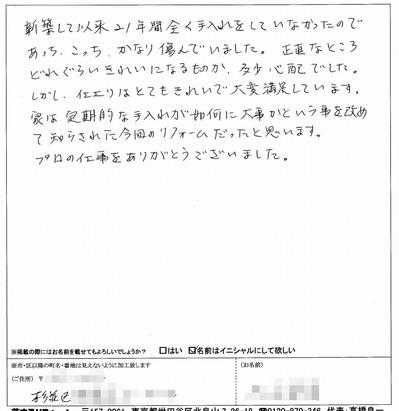 新築して以来21年間全く手入れをしていなかったので
あっち、こっち、かなり傷んでいました。正直なところ
どれぐらいきれいになるものか、多少心配でした。
しかし、仕上りはとてもきれいで大変満足しています。
家は定期的な手入れが如何に大事かという事を改め
て知らされた今回のリフォームだったと思います。
プロの仕事をありがとうございました。
※掲載の際にはお名前を載せてもよろしいでしょうか？ □はい ☑名前はイニシャルにして欲しい
※市・区以降の町名・番地は見えないように加工致します
（お名前）
（ご住所） 〒
杉並区